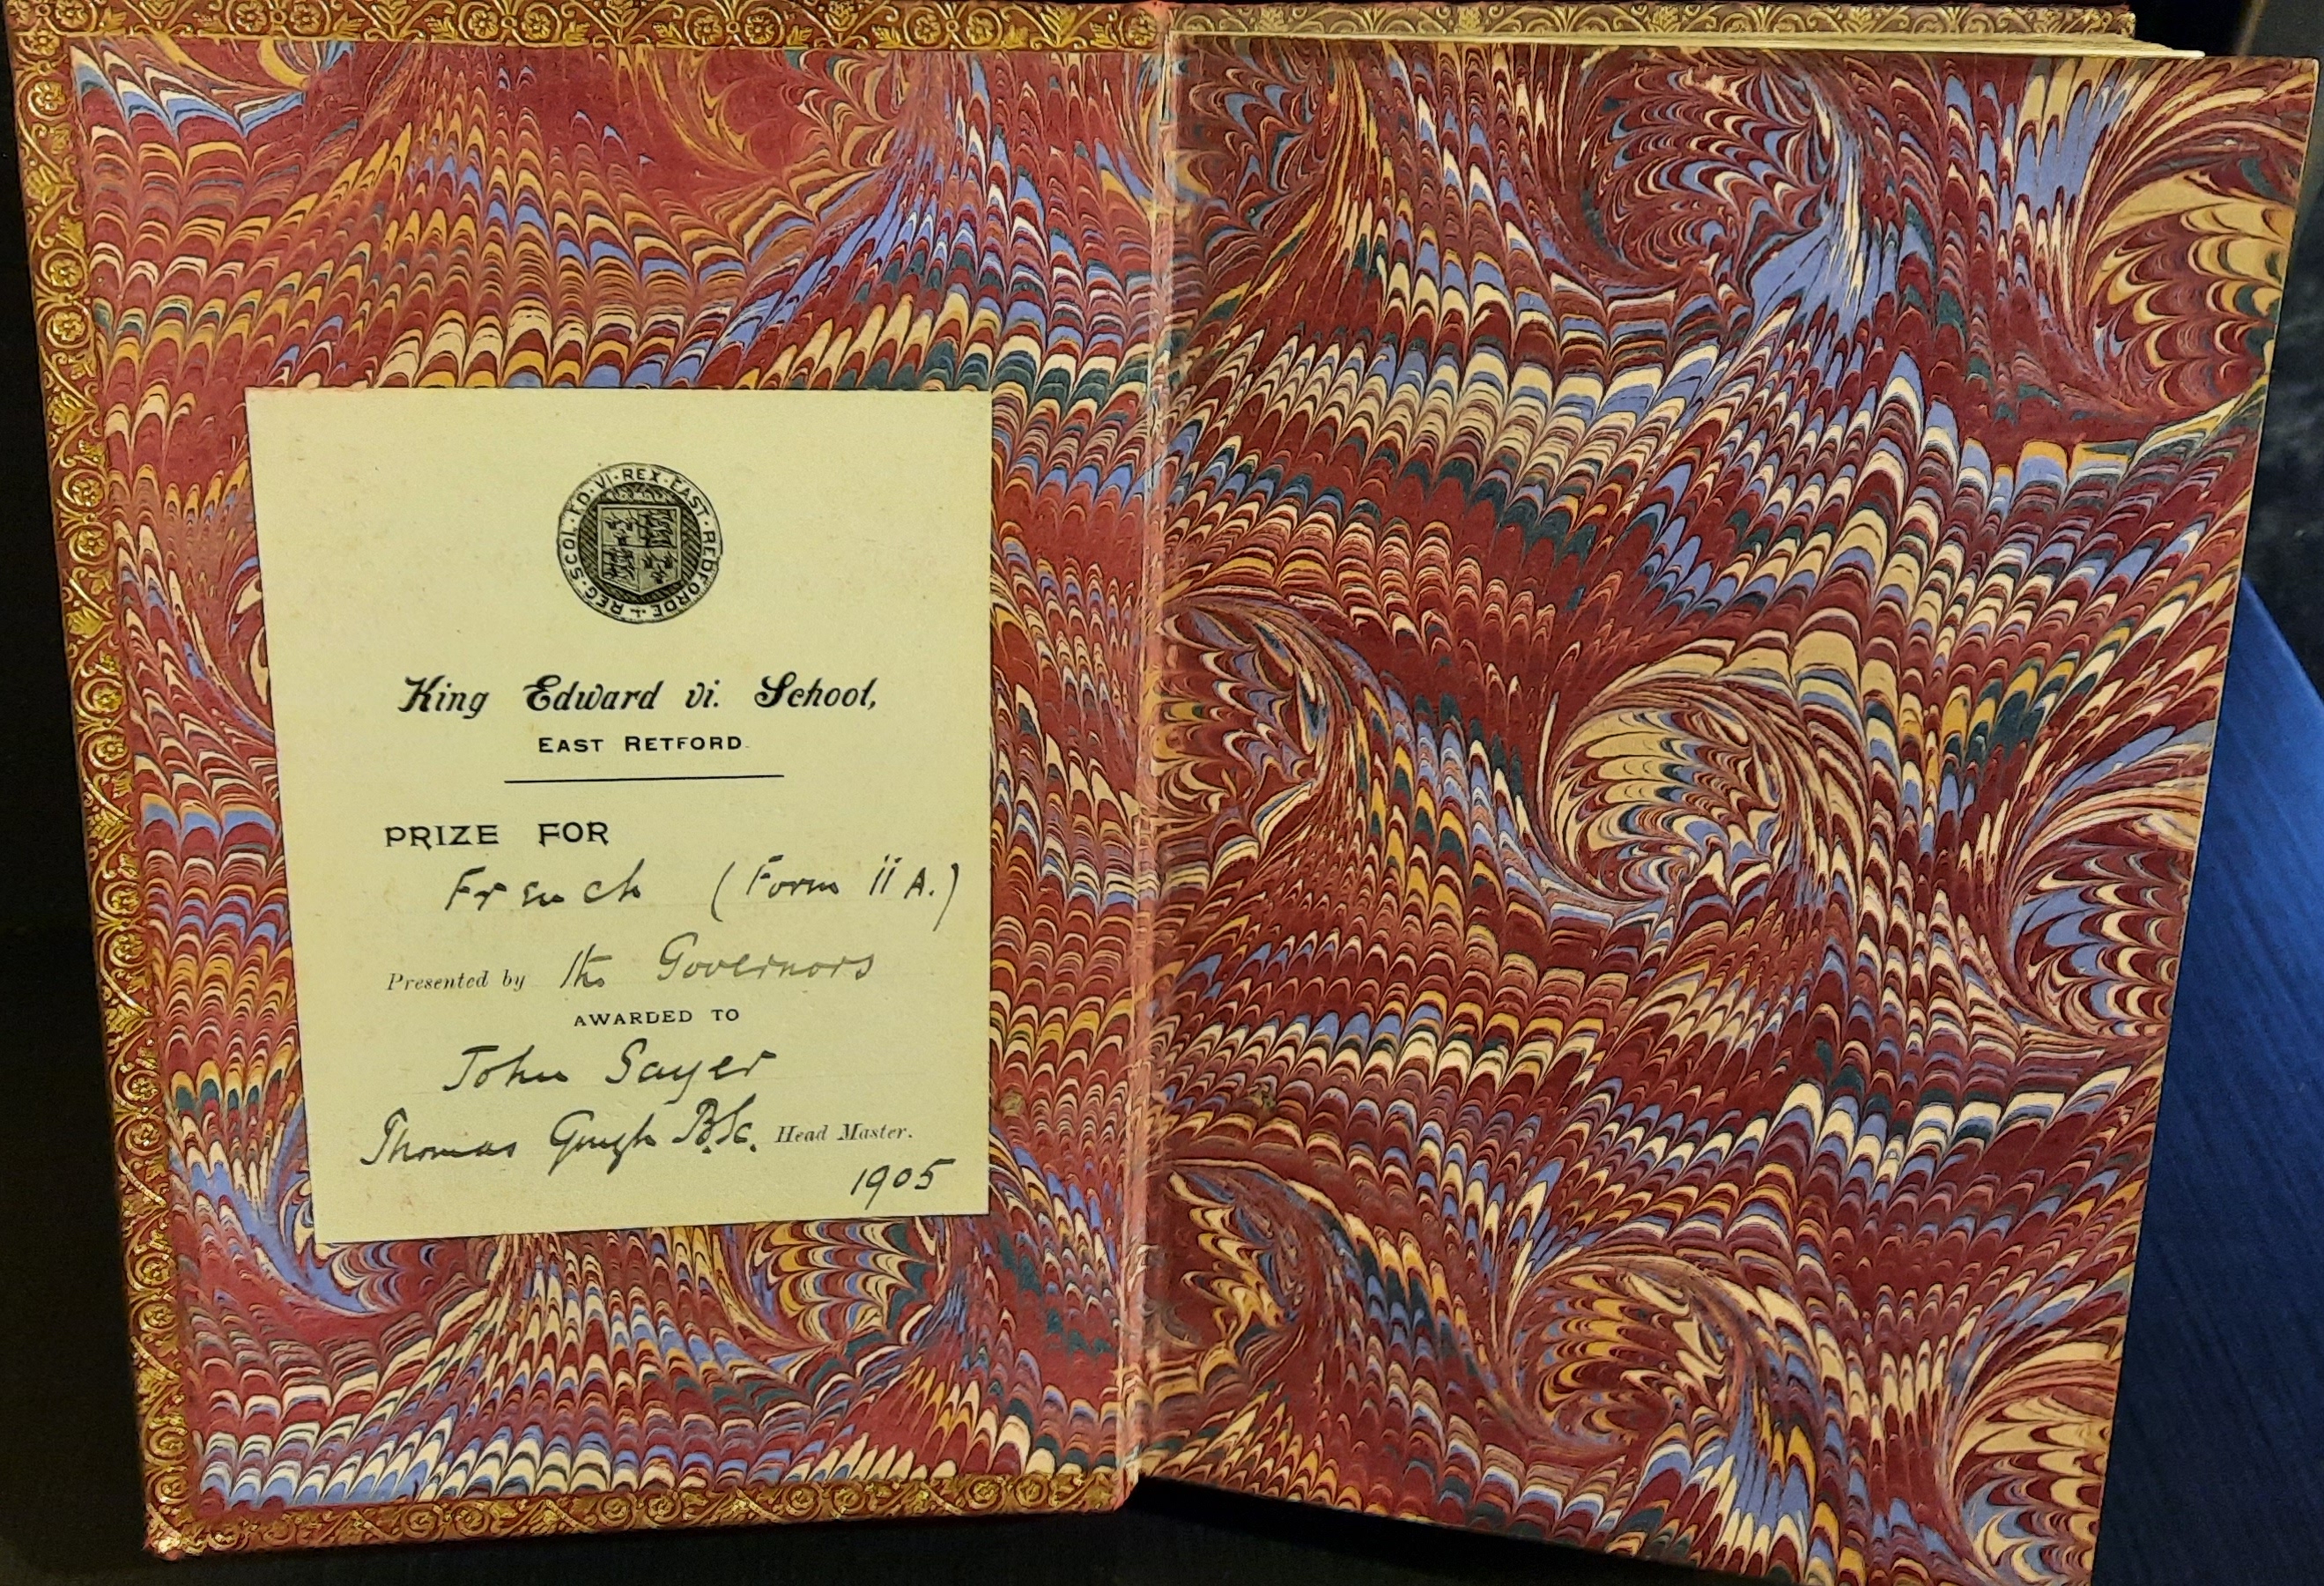 REG·SCOL·ED·VI·REX·EAST·REDFORDE +
King Edward vi. School,
EAST RETFORD.
PRIZE FOR
French (Form ii A.)
Presented by the Governors
AWARDED TO
John Sayer
Thomas Gough B.Sc. Head Master.
1905